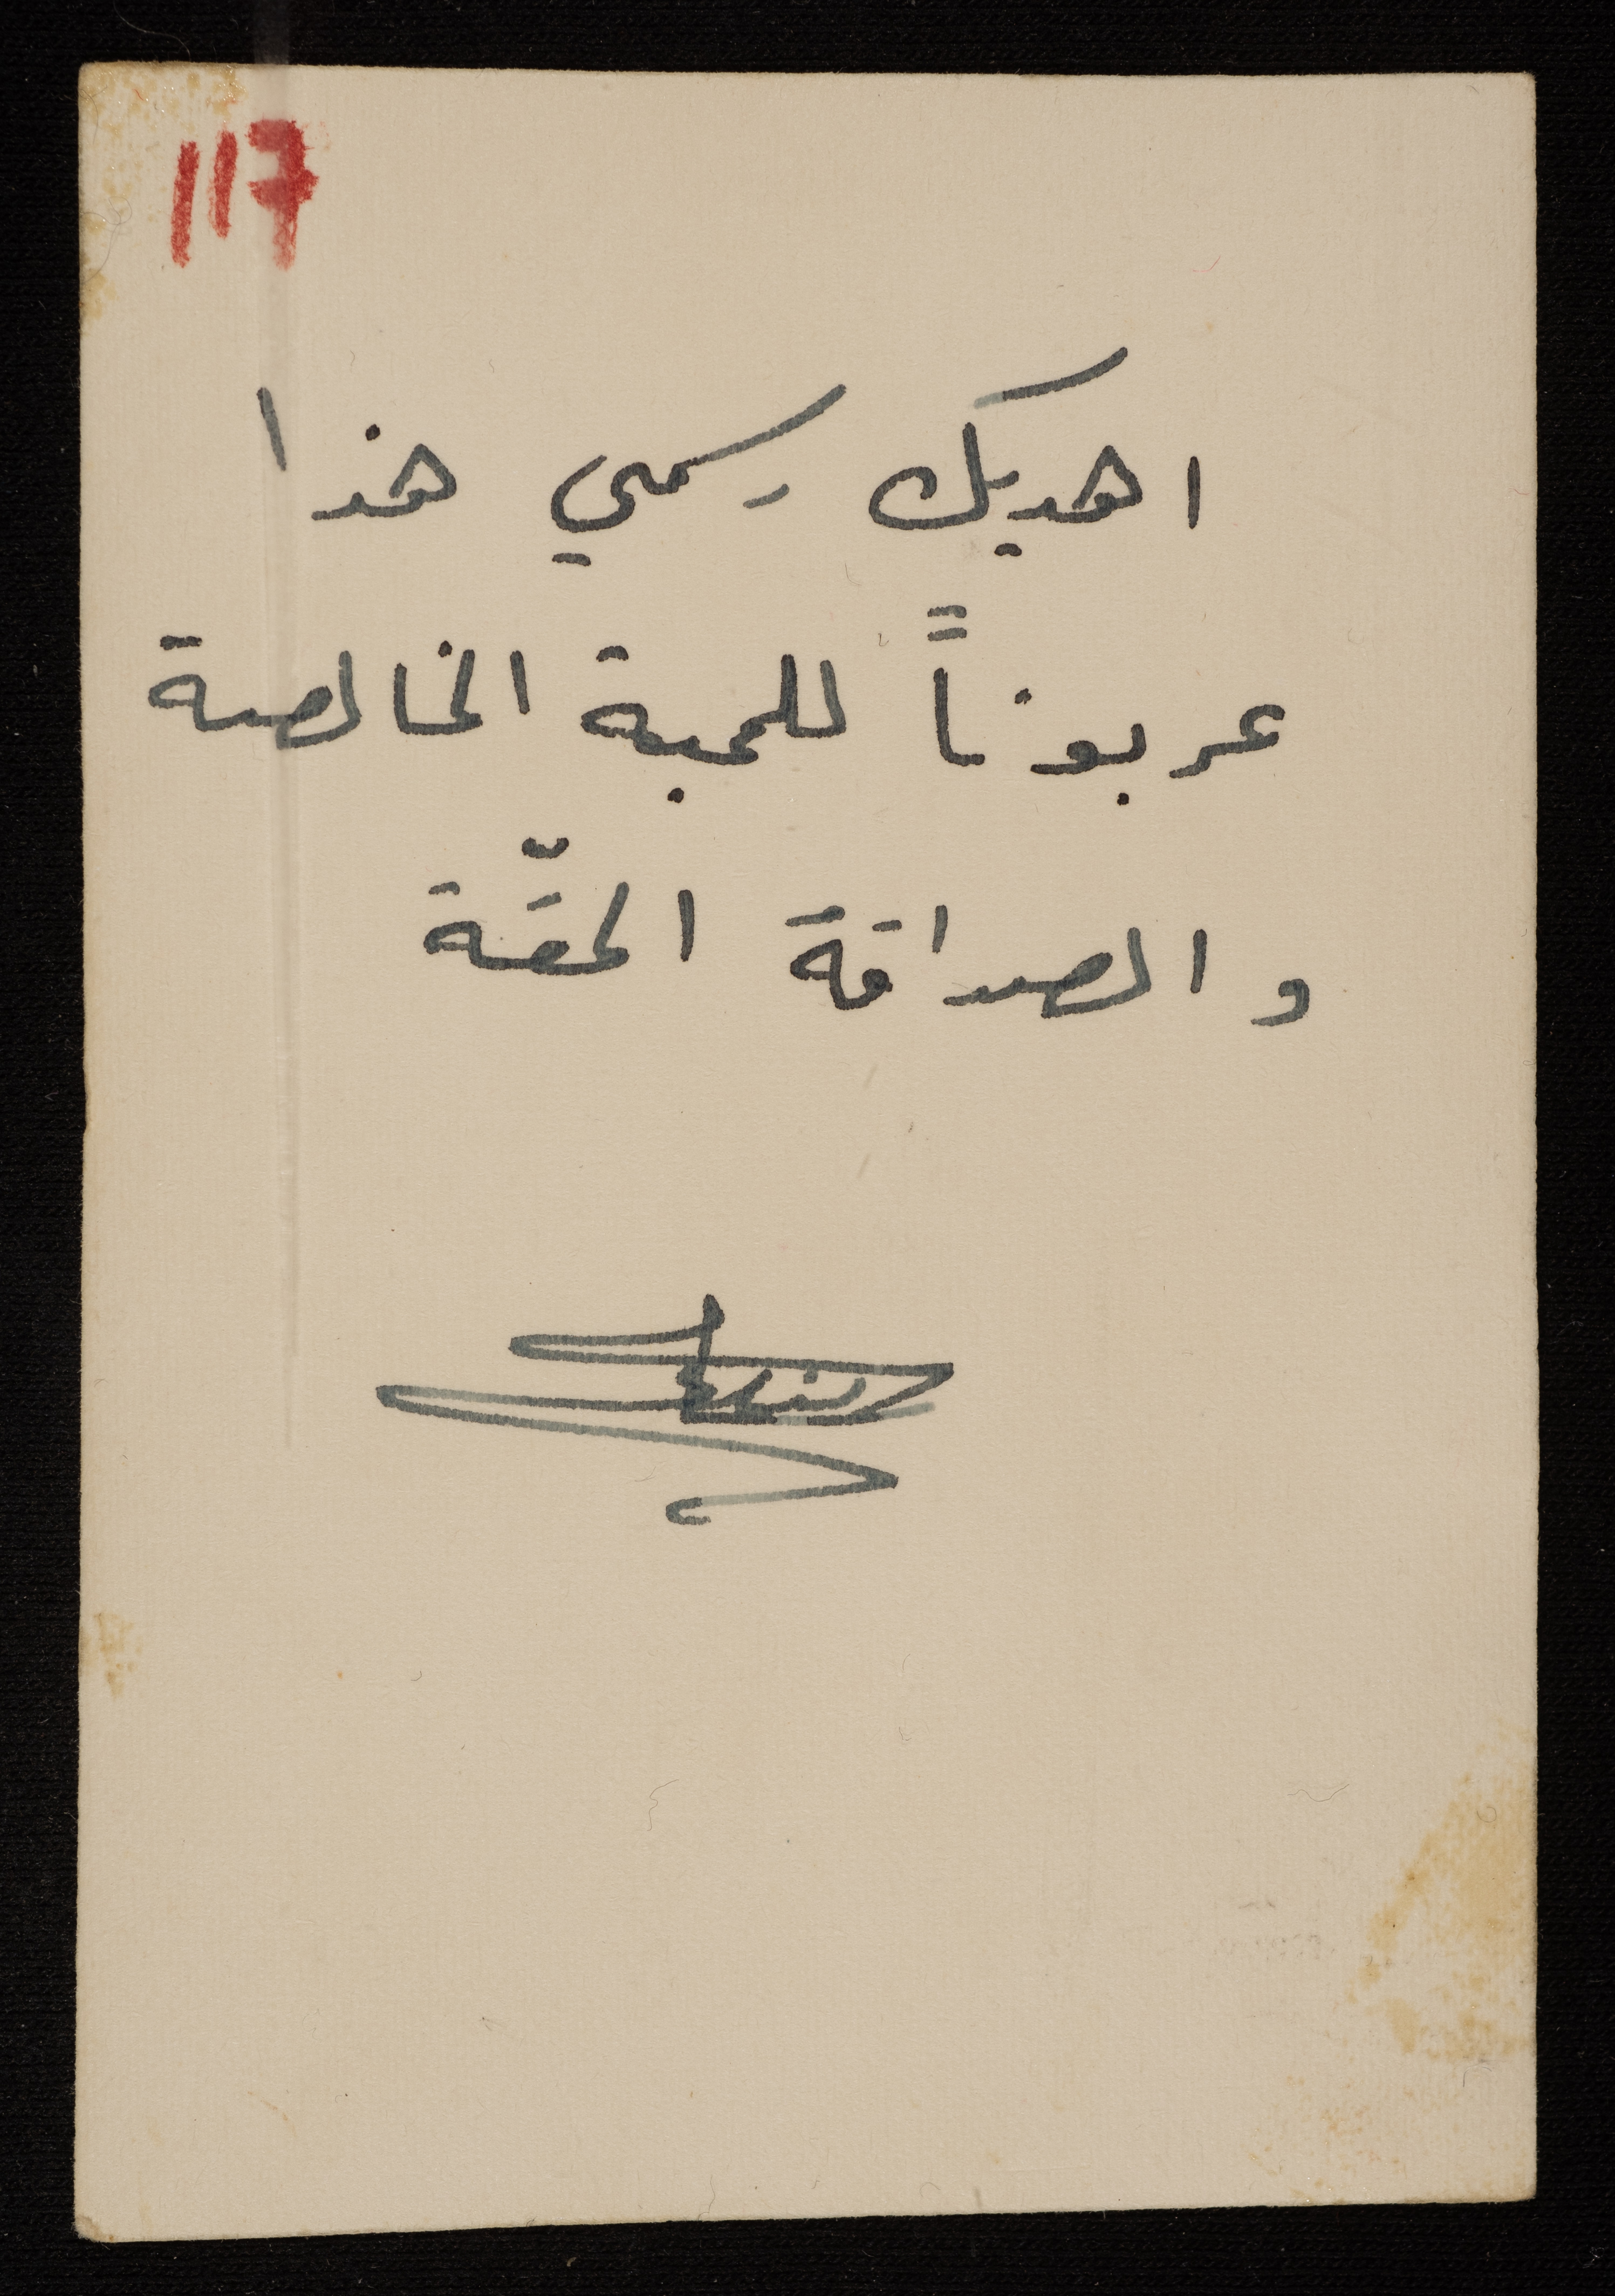 117
اهديك رسمي هذا
عربوناً للمحبة الخالصة
والصداقة الحقّة